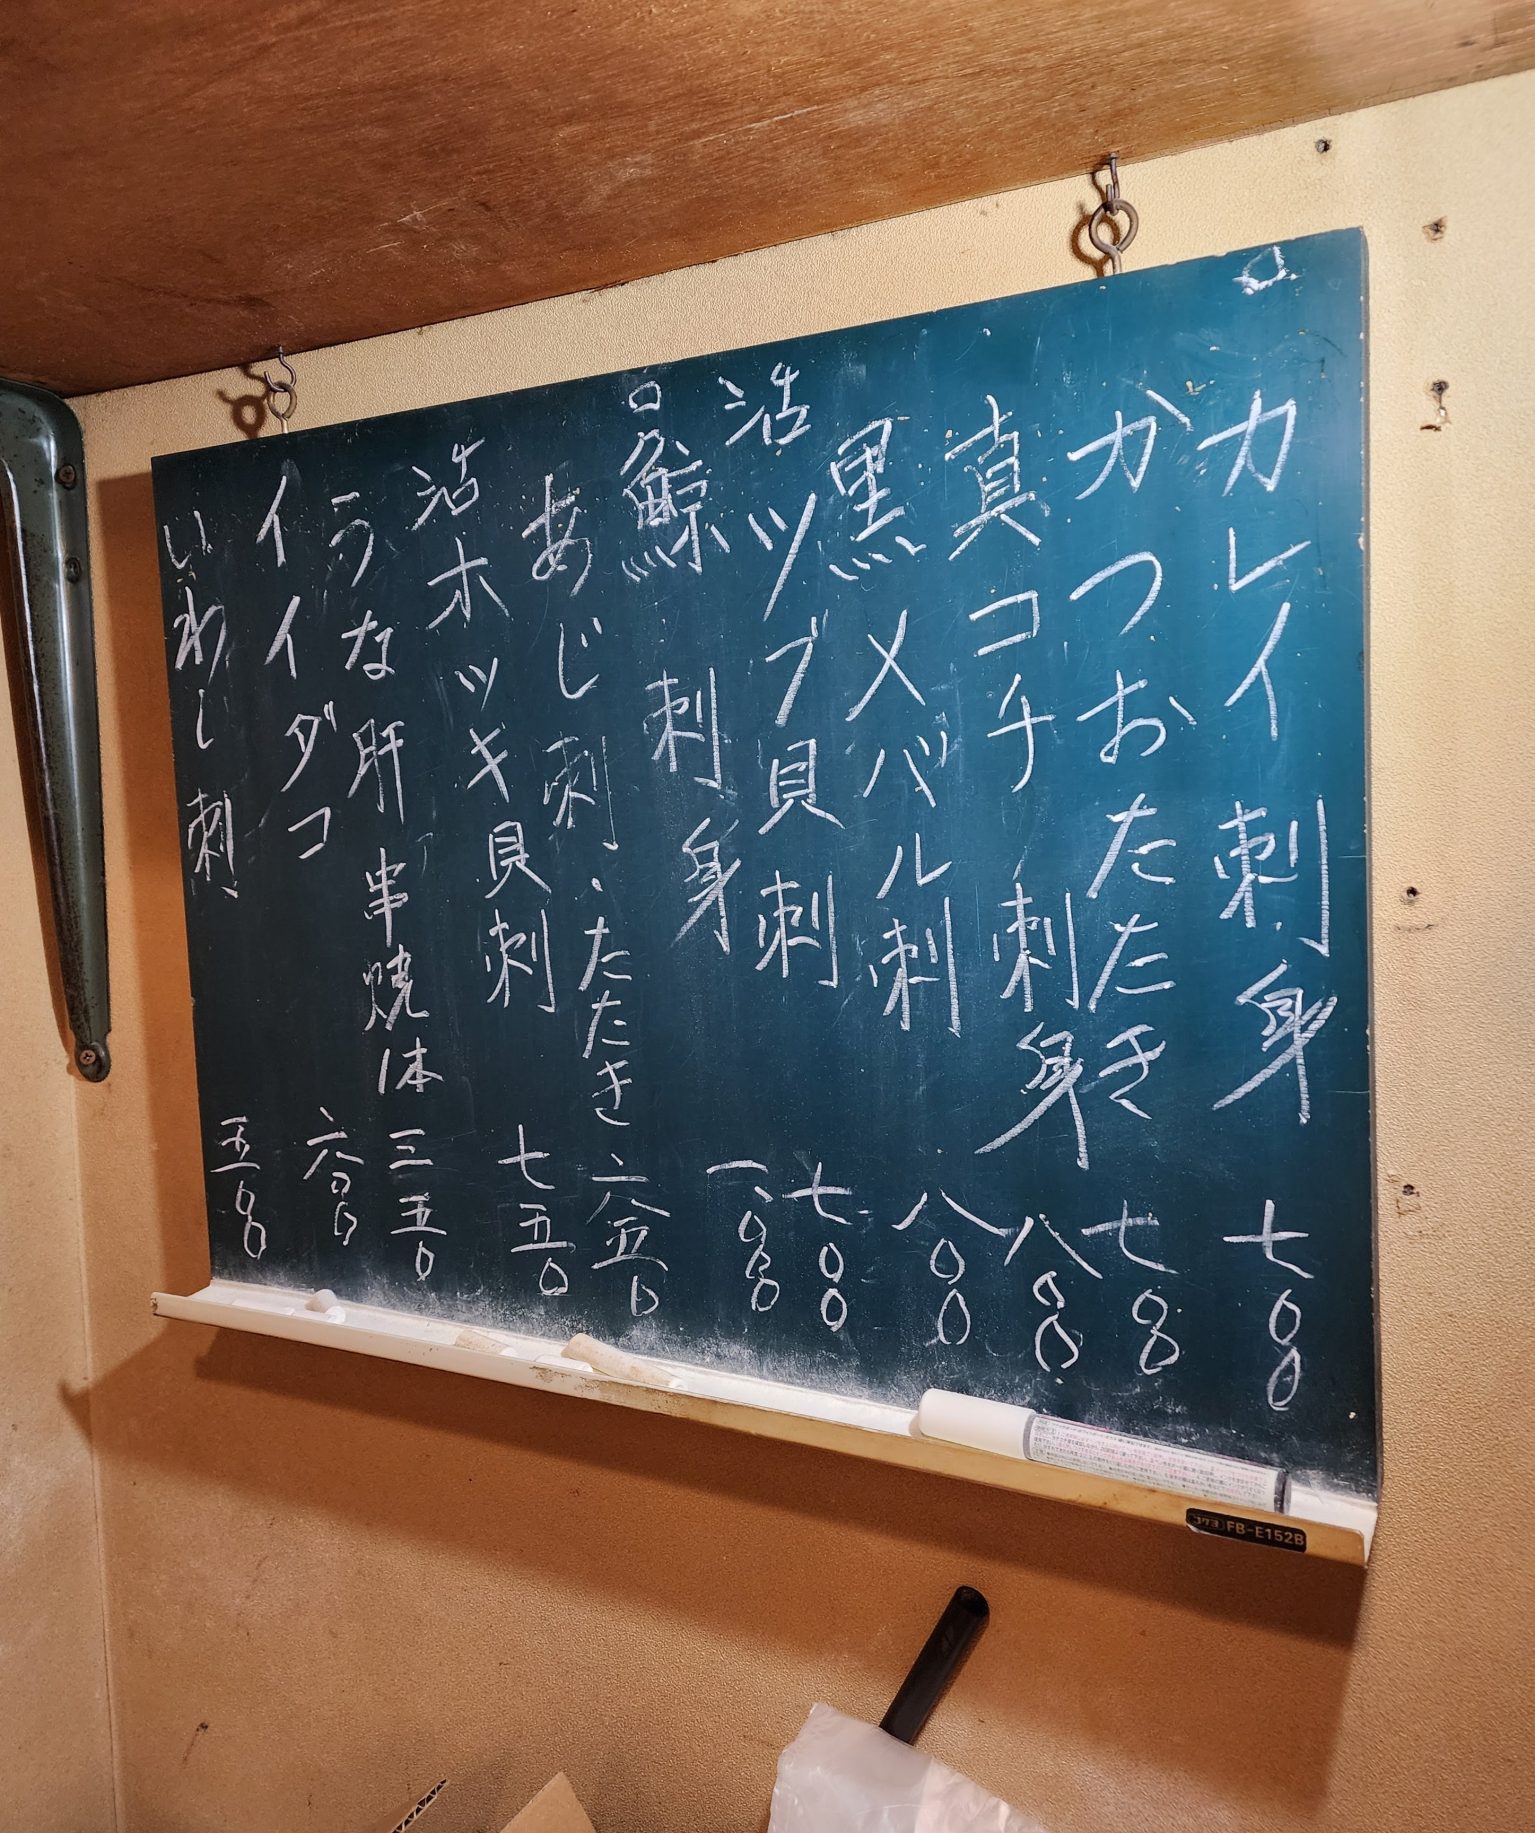 カレイ刺身 七〇〇
かつおたたき 七〇〇
真コチ刺身 八〇〇
黒メバル刺 八〇〇
活ツブ貝刺 七〇〇
鯨刺身 一、〇〇〇
あじ刺・たたき 六五〇
活ホッキ貝刺 七五〇
うな肝串焼一本 三五〇
イイダコ 六〇〇
いわし刺 五〇〇
コクヨ FB-E152B